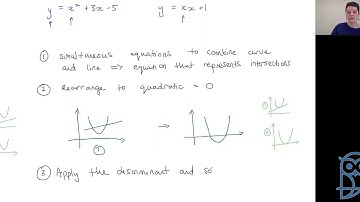 y = x² + 3x - 5 y = kx + 1
① simultaneous equations to combine curve
and line => equation that represents intersections
② Rearrange to quadratic = 0
①
①
②
③ Apply the discriminant and so